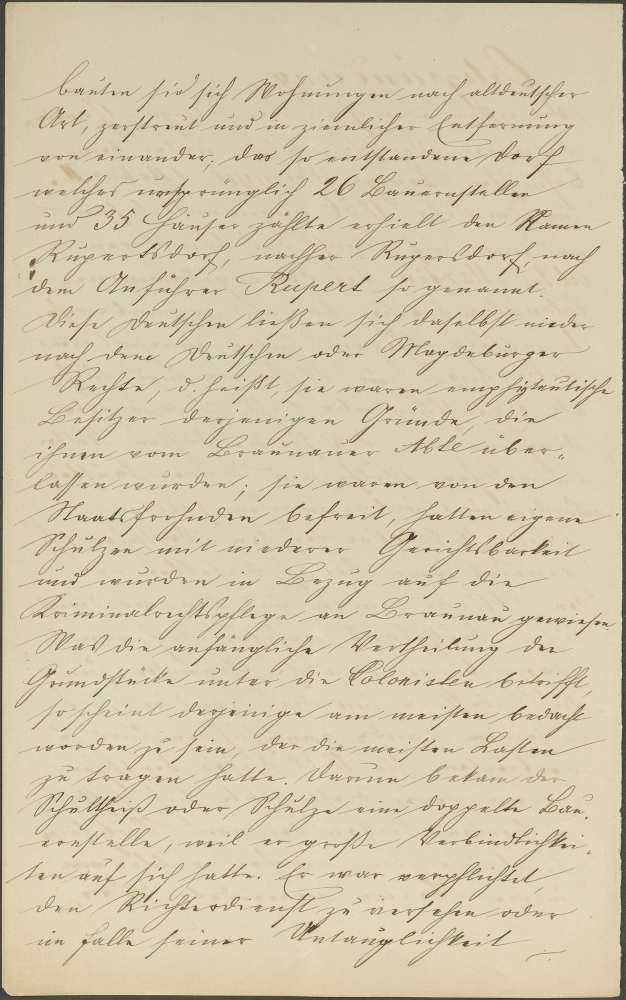 bauten sie sich Wohnungen nach altdeutscher
Art, zerstreut und in ziemlicher Entfernung
von einander; das so entstandene Dorf
welches ursprünglich 26 Bauernstellen
und 35 Häuser zählte erhielt den Namen
Rupertsdorf, nachher Rupersdorf, nach
dem Anführer Rupert so genannt.
Diese Deutschen ließen sich daselbst nieder
nach dem Deutschen oder Magdeburger
Rechte, d. heißt, sie waren emphyteutische
Besitzer derjenigen Gründe, die
ihnen vom Braunauer Abte über„
lassen wurden; sie waren von den
Staatsfrohnden befreit, hatten eigene
Schulzen mit niederer Gerichtsbarkeit
und wurden in Bezug auf die
Kriminalrechtspflege an Braunau gewiesen.
Was die anfängliche Vertheilung der
Grundstücke unter die Colonisten betrifft,
so scheint derjenige am meisten bedacht
worden zu sein, der die meisten Lasten
zu tragen hatte. Darum bekam der
Schultheiß oder Schulze eine doppelte Bau„
ernstelle, weil er große Verbindlichkei„
ten auf sich hatte. Er war verpflichtet,
den Richterdienst zu versehen oder
im Falle seiner Untauglichkeit